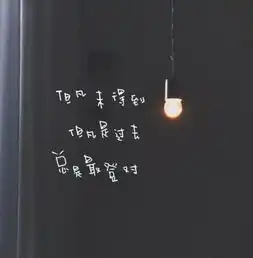 但凡未得到
但凡是过去
总是最登对